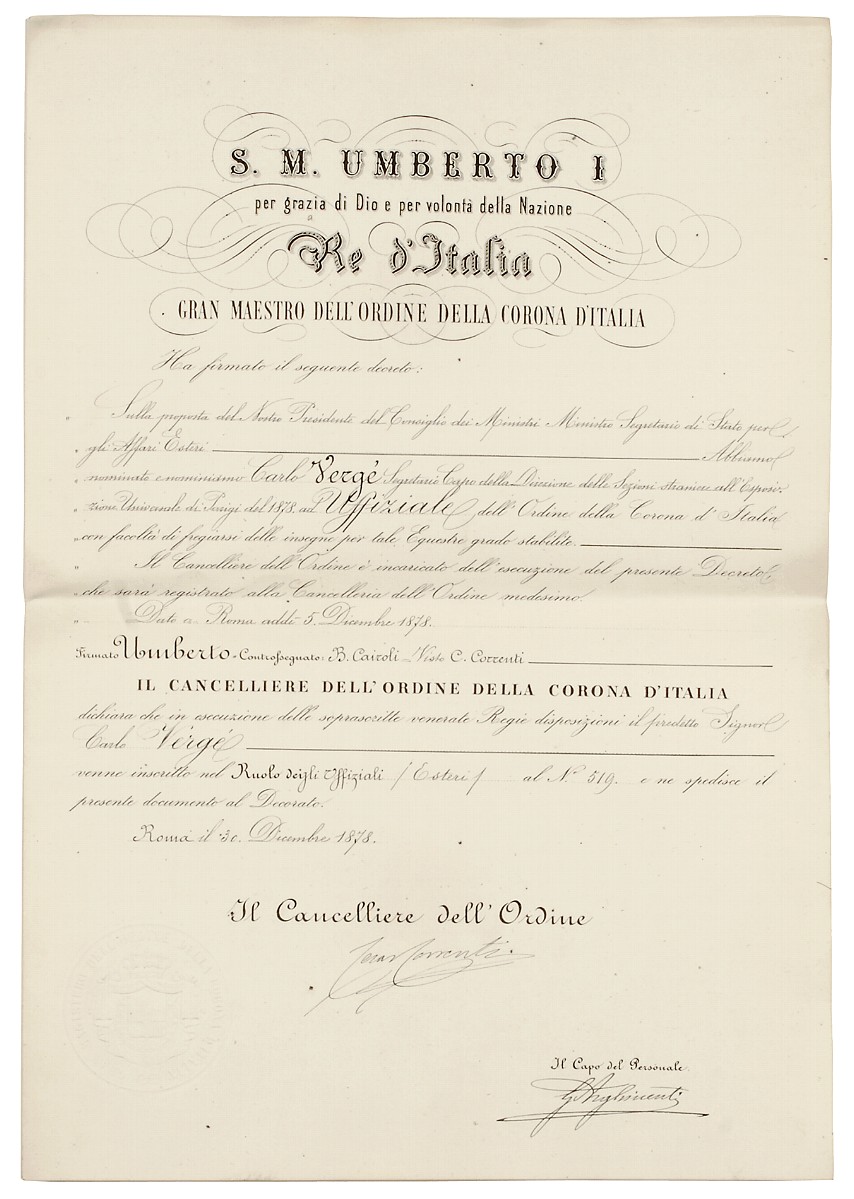 S. M. UMBERTO I
per grazia di Dio e per volontà della Nazione
Re d'Italia
GRAN MAESTRO DELL'ORDINE DELLA CORONA D'ITALIA
Ha firmato il seguente decreto:
Sulla proposta del Nostro Presidente del Consiglio dei Ministri Ministro Segretario di Stato per
gli Affari Esteri Abbiamo
nominato e nominiamo Carlo Vergé Segretario Capo della Direzione delle Sezioni straniere all'Esposi-
zione Universale di Parigi del 1878. ad Uffiziale dell'Ordine della Corona d'Italia
con facoltà di fregiarsi delle insegne per tale Equestre grado stabilite.
Il Cancelliere dell'Ordine è incaricato dell'esecuzione del presente Decreto
che sarà registrato alla Cancelleria dell'Ordine medesimo.
Dato a Roma addì 5. Dicembre 1878.
Firmato Umberto - Controssegnato: B. Cairoli Visto C. Correnti
IL CANCELLIERE DELL'ORDINE DELLA CORONA D'ITALIA
dichiara che in esecuzione delle soprascritte venerate Regie disposizioni il predetto Signor
Carlo Vergé
venne inscritto nel Ruolo degli Uffiziali (Esteri) al N.º 519. e ne spedisce il
presente documento al Decorato.
Roma il 30. Dicembre 1878.
Il Cancelliere dell'Ordine
Cesare Correnti.
Il Capo del Personale.